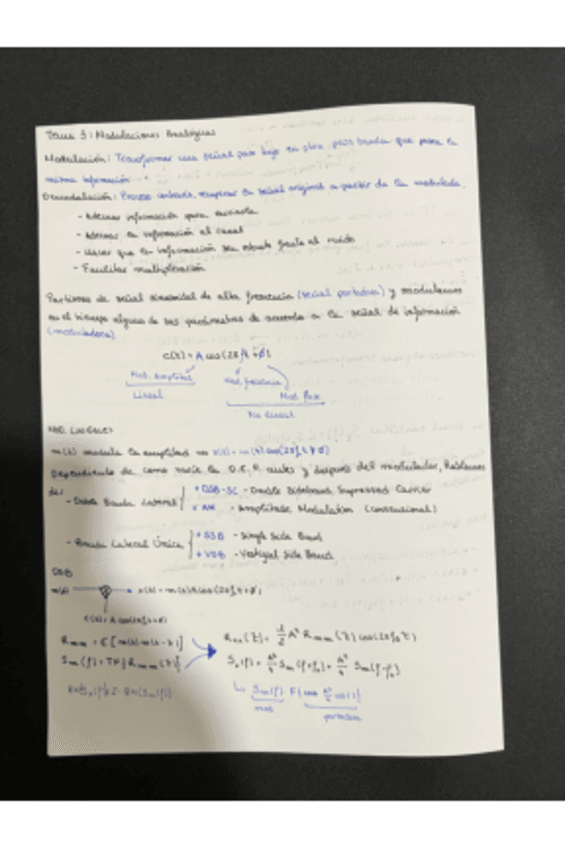 Tema 3: Modulaciones Analógicas
Modulación: Transformar una señal paso bajo en otra paso banda que porta la
misma información
Demodulación: Proceso contrario, recuperar la señal original a partir de la modulada.
- Adecuar información para enviarla
- Adecuar la información al canal
- Hacer que la información sea robusta frente al ruido
- Facilitar multiplexación
Partimos de señal sinusoidal de alta frecuencia (señal portadora) y modulamos
en el tiempo alguno de sus parámetros de acuerdo a la señal de información
(moduladora)
c(t) = A cos(2πf₀t+φ)
Mod. Amplitud Mod. frecuencia
Mod. fase
Lineal
No lineal
MOD. LINEALES
m(t) modula la amplitud
Dependiendo de como varíe la D.E.P. antes y después del modulador, hablamos
de:
- Doble Banda Lateral
+ DSB-SC - Double Sideband Supressed Carrier
+ AM - Amplitude Modulation (convencional)
- Banda Lateral Única
+ SSB - Single Side Band
+ VSB - Vestigial Side Band
DSB
m(t) x(t) = m(t) A cos(2πf₀t+φ)
c(t) = A cos(2πf₀t+φ)